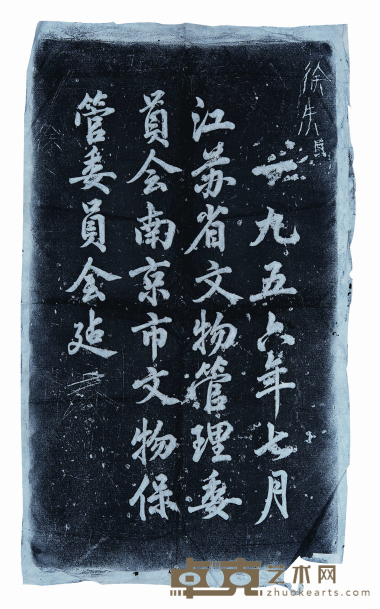 一九五六年七月
江苏省文物管理委
員会南京市文物保
管委員会建
卓克艺术网
zhuokearts.com